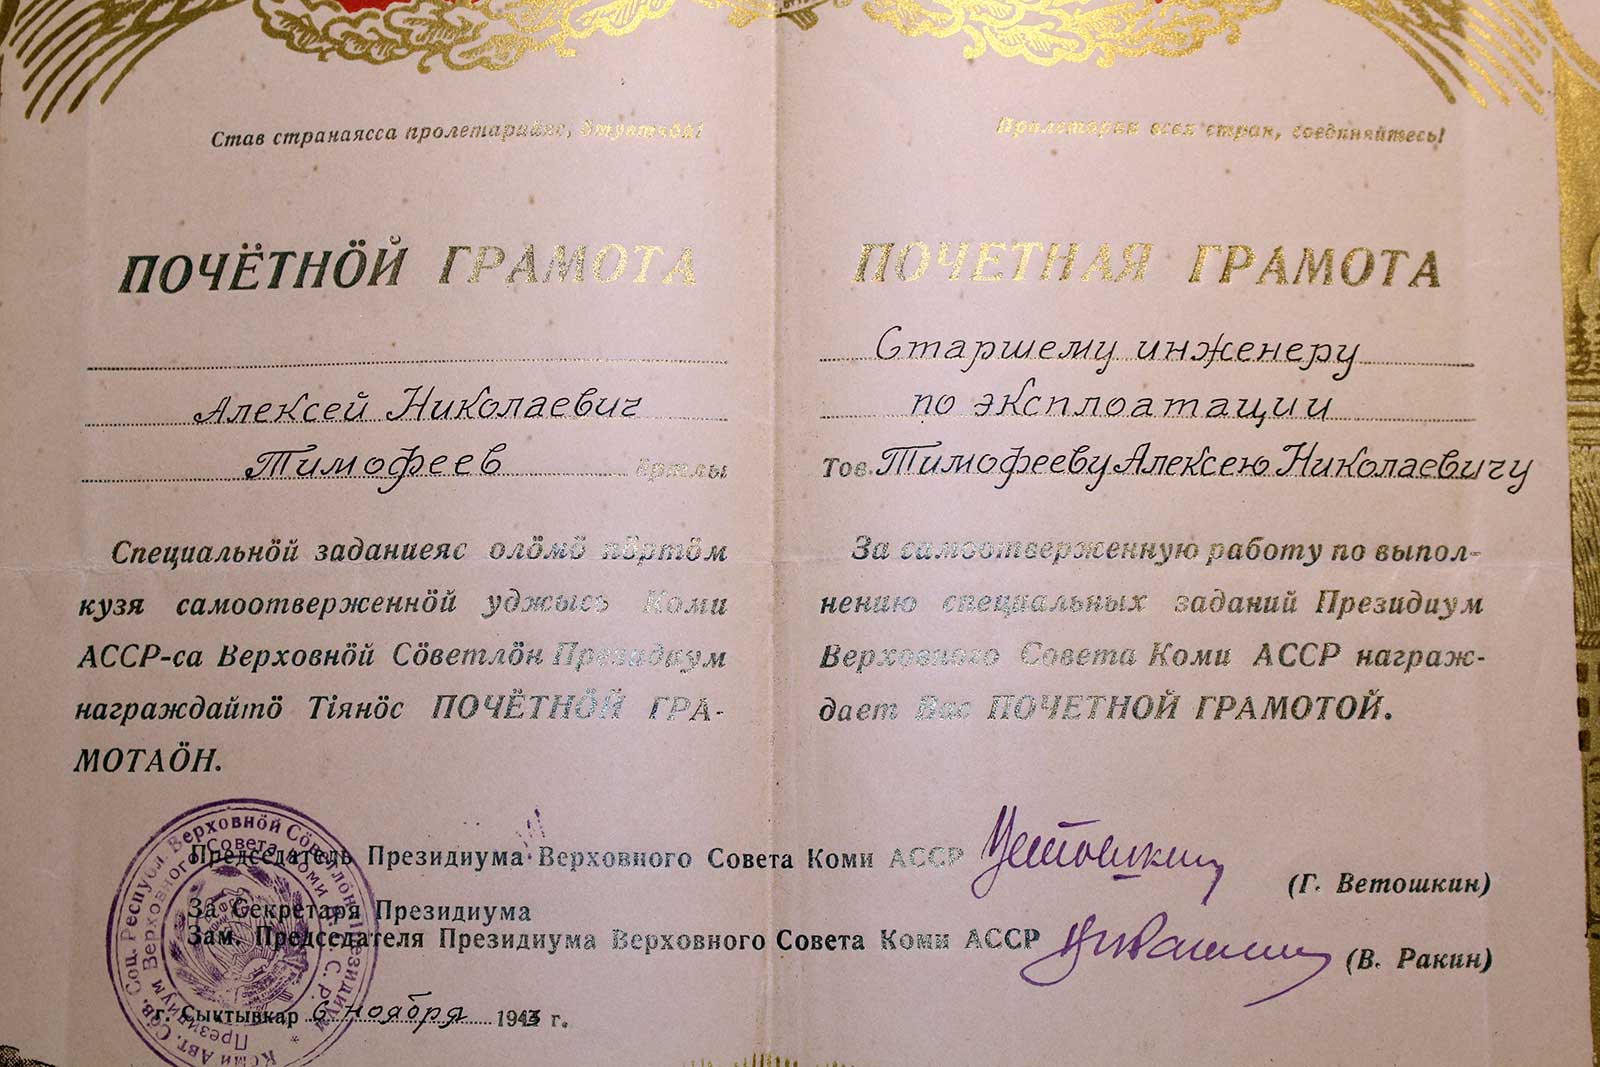 Став странаясса пролетарийяс, ӧтувтчӧй!
ПОЧЁТНӦЙ ГРАМОТА
Алексей Николаевич
Тимофеев ёртлы
Специальнӧй заданиеяс олӧмӧ пӧртӧм
кузя самоотверженнӧй уджысь Коми
АССР-са Верховнӧй Сӧветлӧн Президиум
награждайтӧ Тіянӧс ПОЧЁТНӦЙ ГРА-
МОТАӦН.
Пролетарии всех стран, соединяйтесь!
ПОЧЕТНАЯ ГРАМОТА
Старшему инженеру
по эксплоатации
Тов. Тимофееву Алексею Николаевичу
За самоотверженную работу по выпол-
нению специальных заданий Президиум
Верховного Совета Коми АССР награж-
дает Вас ПОЧЕТНОЙ ГРАМОТОЙ.
Председатель Президиума Верховного Совета Коми АССР
(Г. Ветошкин)
За Секретаря Президиума
Зам. Председателя Президиума Верховного Совета Коми АССР
(В. Ракин)
г. Сыктывкар 6 ноября 1943 г.
Коми Авт. Сов. Соц. Республ. Верховнӧй Сӧветлӧн Президиум
Президиум Верховного Совета Коми А.С.С.Р.